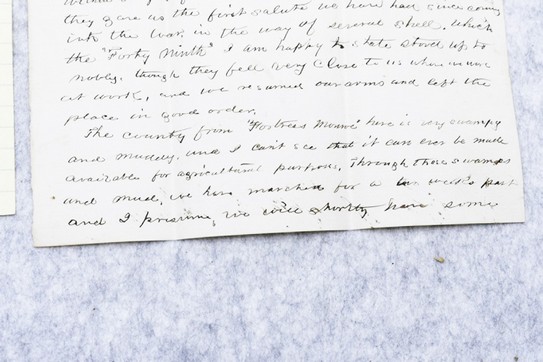 they gave us the first salute we have had since coming
into the war in the way of several shell, which
the "Forty Ninth" I am happy to state stood up to
nobly, though they fell very close to us when we were
at work, and we resumed our arms and left the
place in good order.
The county from "Fortress Monroe" here is very swampy
and muddy, and I can't see that it can ever be made
available for agricultural purpose, through these swamps
and mud, we have marched for a week's past
and I presume, we will shortly have some